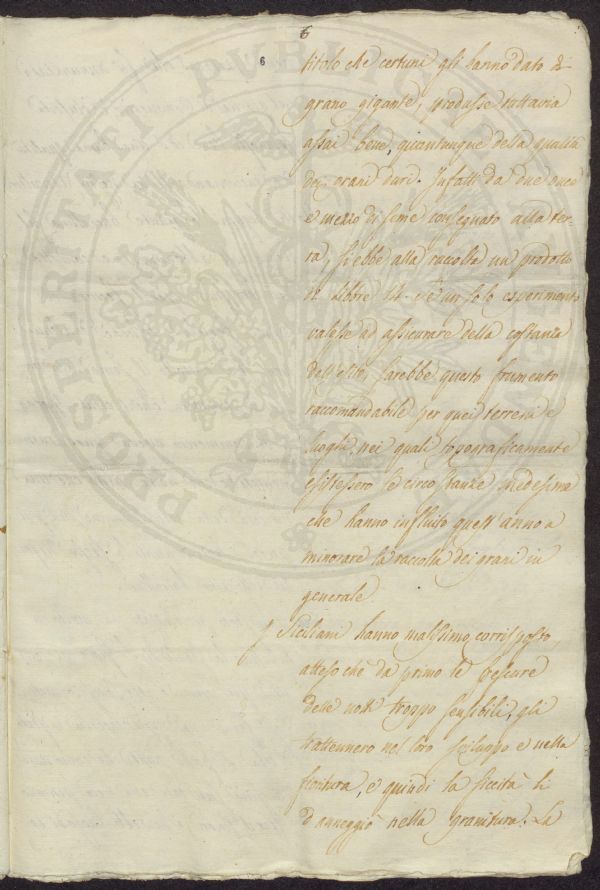 6
6
titolo che certuni gli hanno dato di
grano gigante, produsse tuttavia
assai bene, quantunque della qualità
dei grani duri. Infatti da due once
e mezzo di seme consegnato alla ter-
ra, si ebbe alla raccolta un prodotto
di libbre se un solo esperimento
valesse ad assicurare della costanza
dell'esito, sarebbe questo frumento
raccomandabile per quei terreni e
luoghi, nei quali topograficamente
esistessero le circostanze medesime
che hanno influito quest'anno a
minorare la raccolta dei grani in
generale.
I Siciliani hanno malissimo corrisposto,
atteso chè da primo le frescure
delle notti troppo sensibili, gli
trattennero nel loro sviluppo e nella
fioritura, e quindi la siccità li
danneggiò nella granitura. La
PROSPERITATI PUBLICAE